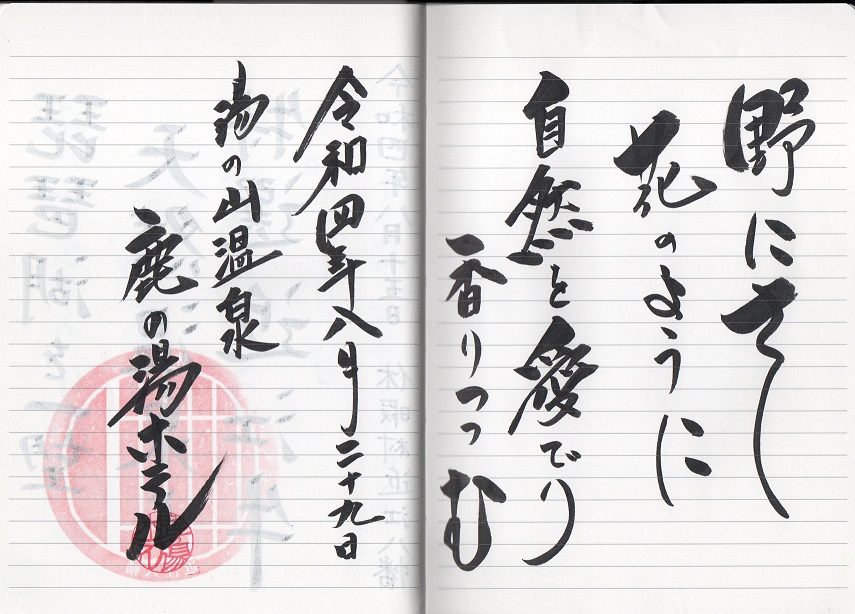 野にさく
花のように
自然を愛でり
香りつつむ
令和四年八月二十九日
湯の山温泉
鹿の湯ホテル